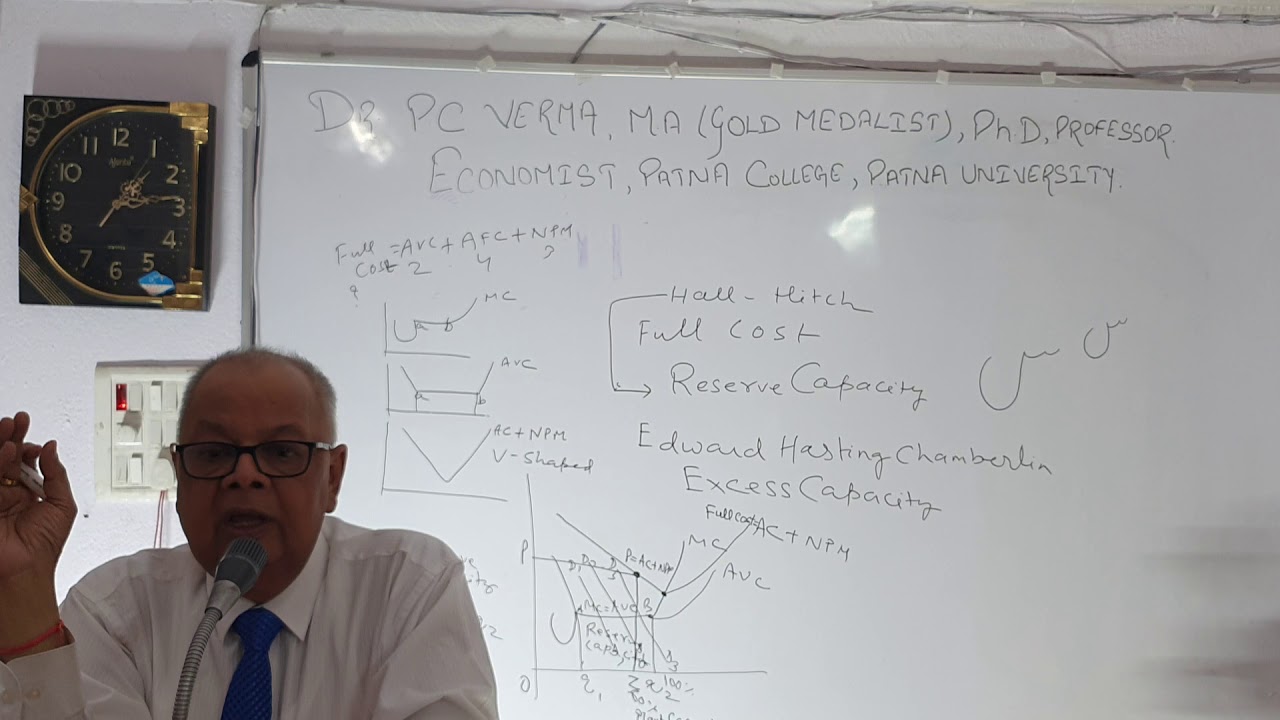 DR. PC VERMA, MA (GOLD MEDALIST), Ph.D, PROFESSOR
ECONOMIST, PATNA COLLEGE, PATNA UNIVERSITY.
12
1
2
3
4
5
6
7
8
9
10
11
Ajanta
Full = AVC + AFC + NPM
Cost 2 4
MC
a b
AVC
a b
AC + NPM
V-Shaped
Hall - Hitch
Full Cost
Reserve Capacity
Edward Hasting Chamberlin
Excess Capacity
Full cost = AC + NPM
MC
AVC
P
P = AC + NPM
D1 D2 D3
MC = AVC B
Reserve
Capacity
O
q1
q2
100%